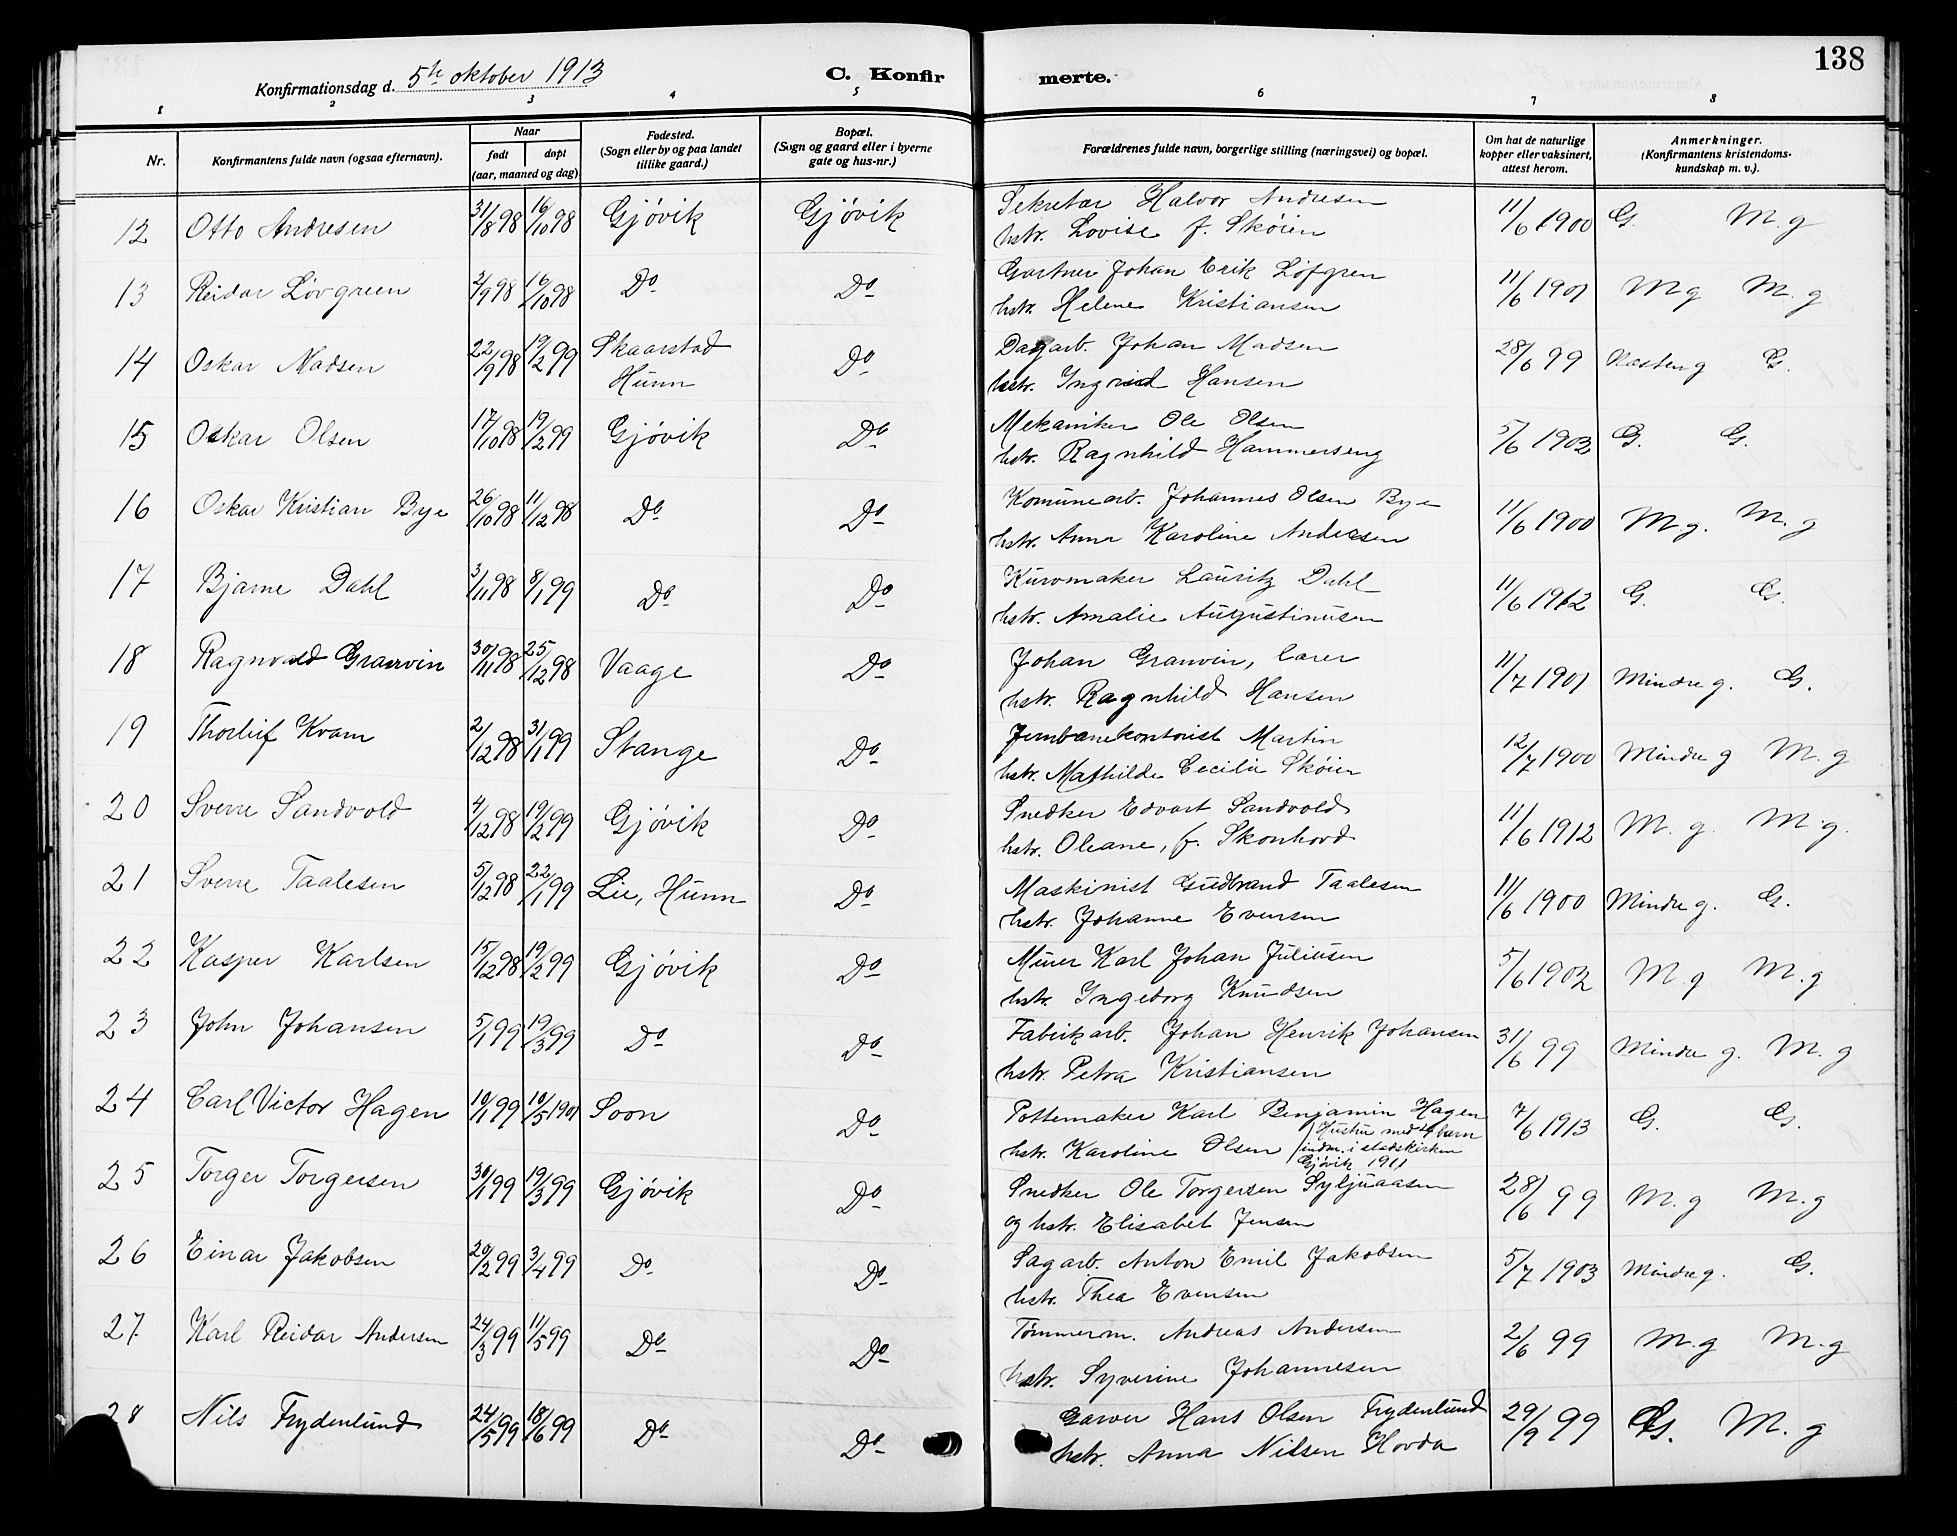 138
Konfirmationsdag d. 5te oktober 1913
C. Konfirmerte.
1 2 3 4 5 6 7 8
Nr. | Konfirmantens fulde navn (ogsaa efternavn). | Naar født | døpt (aar, maaned og dag) | Fødested. (Sogn eller by og paa landet tillike gaard.) | Bopæl. (Sogn og gaard eller i byerne gate og hus-nr.) | Forældrenes fulde navn, borgerlige stilling (næringsvei) og bopæl. | Om hat de naturlige kopper eller vaksinert, attest herom. | Anmerkninger. (Konfirmantens kristendomskundskap m. v.).
12 Otto Andresen 31/8 98 16/10 98 Gjøvik Gjøvik Sekretær Halvor Andresen 11/6 1900 G. M. g
hstr. Lovise f. Skøien
13 Reidar Løvgreen 2/9 98 16/10 98 Do Do Gartner Johan Erik Löfgren 11/6 1901 M g M. g
hstr. Helene Kristiansen
14 Oskar Madsen 22/9 98 19/2 99 Skaarstad Do Dagarb. Johan Madsen 28/6 99 Næsten g G.
Hunn hstr. Ingrid Hansen
15 Oskar Olsen 17/10 98 19/2 99 Gjøvik Do Mekaniker Ole Olsen 5/6 1902 G. G.
hstr. Ragnhild Hammerseng
16 Oskar Kristian Bye 26/10 98 11/12 98 Do Do Komunearb. Johannes Olsen Bye 11/6 1900 M. g. M. g
hstr. Anna Karoline Andersen
17 Bjarne Dahl 3/11 98 8/1 99 Do Do Kurvmaker Lauritz Dahl 11/6 1912 G. G.
hstr. Amalie Augustinusen
18 Ragnvald Granvin 30/11 98 25/12 98 Vaage Do Johan Granvin, lærer 11/7 1901 Mindre g. G.
hstr. Ragnhild Hansen
19 Thorleif Kvam 2/12 98 31/1 99 Stange Do Jernbanekontorist Martin 12/7 1900 Mindre g M. g
hstr. Mathilde Cecilie Skøien
20 Sverre Sandvold 4/12 98 19/2 99 Gjøvik Do Snedker Edvart Sandvold 11/6 1912 M. g. M. g.
hstr. Oleane, f. Skonhovd
21 Sverre Taalesen 5/12 98 22/1 99 Lie, Hunn Do Maskinist Gudbrand Taalesen 11/6 1900 Mindre g. G.
hstr. Johanne Evensen
22 Kasper Karlsen 15/12 98 19/2 99 Gjøvik Do Murer Karl Johan Juliusen 5/6 1902 M g M. g
hstr. Ingeborg Knudsen
23 John Johansen 5/1 99 19/3 99 Do Do Fabrikarb. Johan Henrik Johansen 31/6 99 Mindre g. M. g
hstr. Petra Kristiansen
24 Carl Victor Hagen 10/1 99 10/5 1901 Soon Do Pottemaker Karl Benjamin Hagen 7/6 1913 G. G.
hstr. Karoline Olsen
Hustru med 4 barn
indm. i statskirken
Gjøvik 1911
25 Torger Torgersen 30/1 99 19/3 99 Gjøvik Do Snedker Ole Torgersen Syljuaasen 28/6 99 M. g M. g
og hstr. Elisabet Jensen
26 Einar Jakobsen 20/2 99 3/4 99 Do Do Sagarb. Anton Emil Jakobsen 5/7 1903 Mindre g. G.
hstr. Thea Evensen
27. Karl Reidar Andersen 24/3 99 11/5 99 Do Do Tømmerm. Andreas Andersen 2/6 99 M. g M. g
hstr. Syverine Johannesen
28 Nils Frydenlund 24/5 99 18/6 99 Do Do Garver Hans Olsen Frydenlund 29/9 99 G. M. g
hstr. Anna Nilsen Hovda